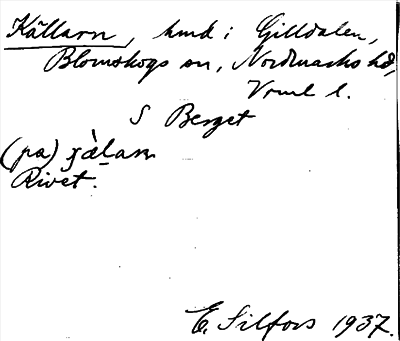 Källarn, hmd i Gilldalen,
Blomskogs sn, Nordmarks hd,
Vrml l.
S Berget
(pa) 
Rivet.
E. Silfors 1937.